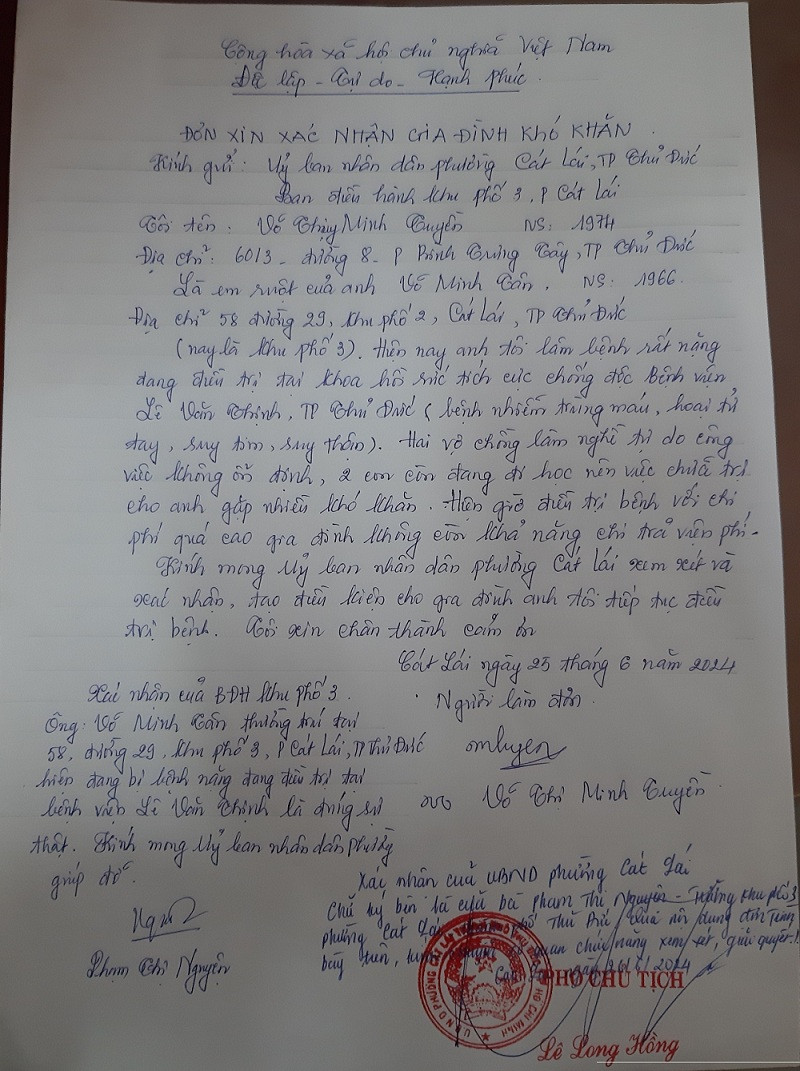 Cộng hòa xã hội chủ nghĩa Việt Nam
Độc lập - Tự do - Hạnh phúc.
ĐƠN XIN XÁC NHẬN GIA ĐÌNH KHÓ KHĂN.
Kính gửi: Uỷ ban nhân dân phường Cát Lái, TP Thủ Đức
Ban điều hành khu phố 3, P Cát Lái
Tôi tên: Võ Thị Minh Tuyền NS: 1974
Địa chỉ: 60/3 - đường 8 - P Bình Trưng Tây, TP Thủ Đức
Là em ruột của anh Võ Minh Tân, NS: 1966.
Địa chỉ 58 đường 29, khu phố 2, Cát Lái, TP Thủ Đức
(nay là khu phố 3). Hiện nay anh tôi lâm bệnh rất nặng
đang điều trị tại khoa hồi sức tích cực chống độc Bệnh viện
Lê Văn Thịnh, TP Thủ Đức (bệnh nhiễm trùng máu, hoại tử
tay, suy tim, suy thận). Hai vợ chồng làm nghề tự do công
việc không ổn định, 2 con còn đang đi học nên việc chữa trị
cho anh gặp nhiều khó khăn. Hiện giờ điều trị bệnh với chi
phí quá cao gia đình không còn khả năng chi trả viện phí.
Kính mong Uỷ ban nhân dân phường Cát Lái xem xét và
xác nhận, tạo điều kiện cho gia đình anh tôi tiếp tục điều
trị bệnh. Tôi xin chân thành cảm ơn
Cát Lái ngày 25 tháng 6 năm 2024
Người làm đơn.
Võ Thị Minh Tuyền
Xác nhận của BĐH khu phố 3.
Ông: Võ Minh Tân thường trú tại
58, đường 29, khu phố 3, P Cát Lái, TP Thủ Đức
hiện đang bị bệnh nặng đang điều trị tại
bệnh viện Lê Văn Thịnh là đúng sự
thật. Kính mong Uỷ ban nhân dân phường
giúp đỡ.
Phạm Thị Nguyên
Xác nhận của UBND phường Cát Lái
Chữ ký bên là của bà Phạm Thị Nguyên - Trưởng khu phố 3
phường Cát Lái, Thủ Đức. Qua nội dung đơn
bày trên, quan chức năng xem xét, giải quyết.
PHÓ CHỦ TỊCH
Lê Long Hồng